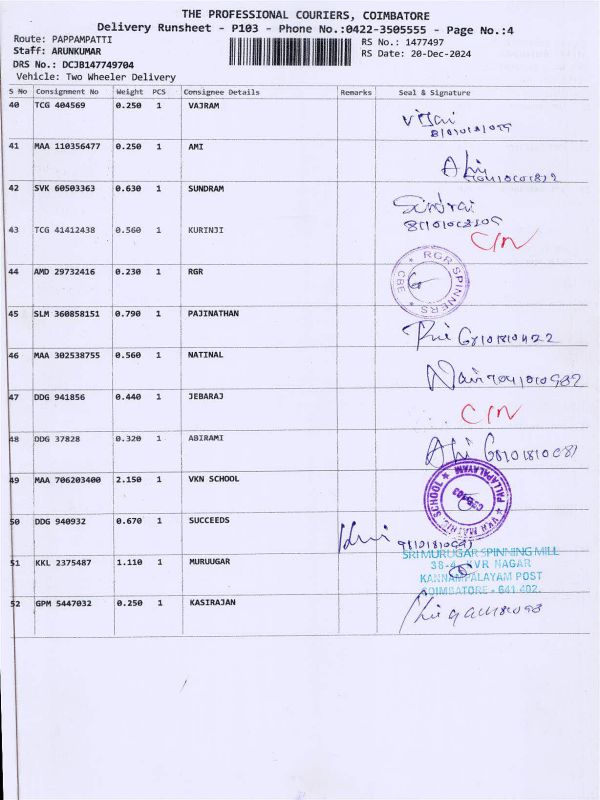 THE PROFESSIONAL COURIERS, COIMBATORE
Delivery Runsheet - P103 - Phone No.:0422-3505555 - Page No.:4
Route: PAPPAMPATTI
RS No.: 1477497
Staff: ARUNKUMAR
RS Date: 20-Dec-2024
DRS No.: DCJB147749704
Vehicle: Two Wheeler Delivery
S No Consignment No Weight PCS Consignee Details Remarks Seal & Signature
40 TCG 404569 0.250 1 VAJRAM
41 MAA 110356477 0.250 1 AMI
42 SVK 60503363 0.630 1 SUNDRAM
43 TCG 41412438 0.560 1 KURINJI C/N
44 AMD 29732416 0.230 1 RGR RGR SPINNERS CBE
45 SLM 360858151 0.790 1 PAJINATHAN
46 MAA 302538755 0.560 1 NATINAL
47 DDG 941856 0.440 1 JEBARAJ C/N
48 DDG 37828 0.320 1 ABIRAMI
49 MAA 706203400 2.150 1 VKN SCHOOL
50 DDG 940932 0.670 1 SUCCEEDS
51 KKL 2375487 1.110 1 MURUUGAR
SRI MURUGAR SPINNING MILL
KANNAMPALAYAM POST
COIMBATORE - 641 402.
52 GPM 5447032 0.250 1 KASIRAJAN